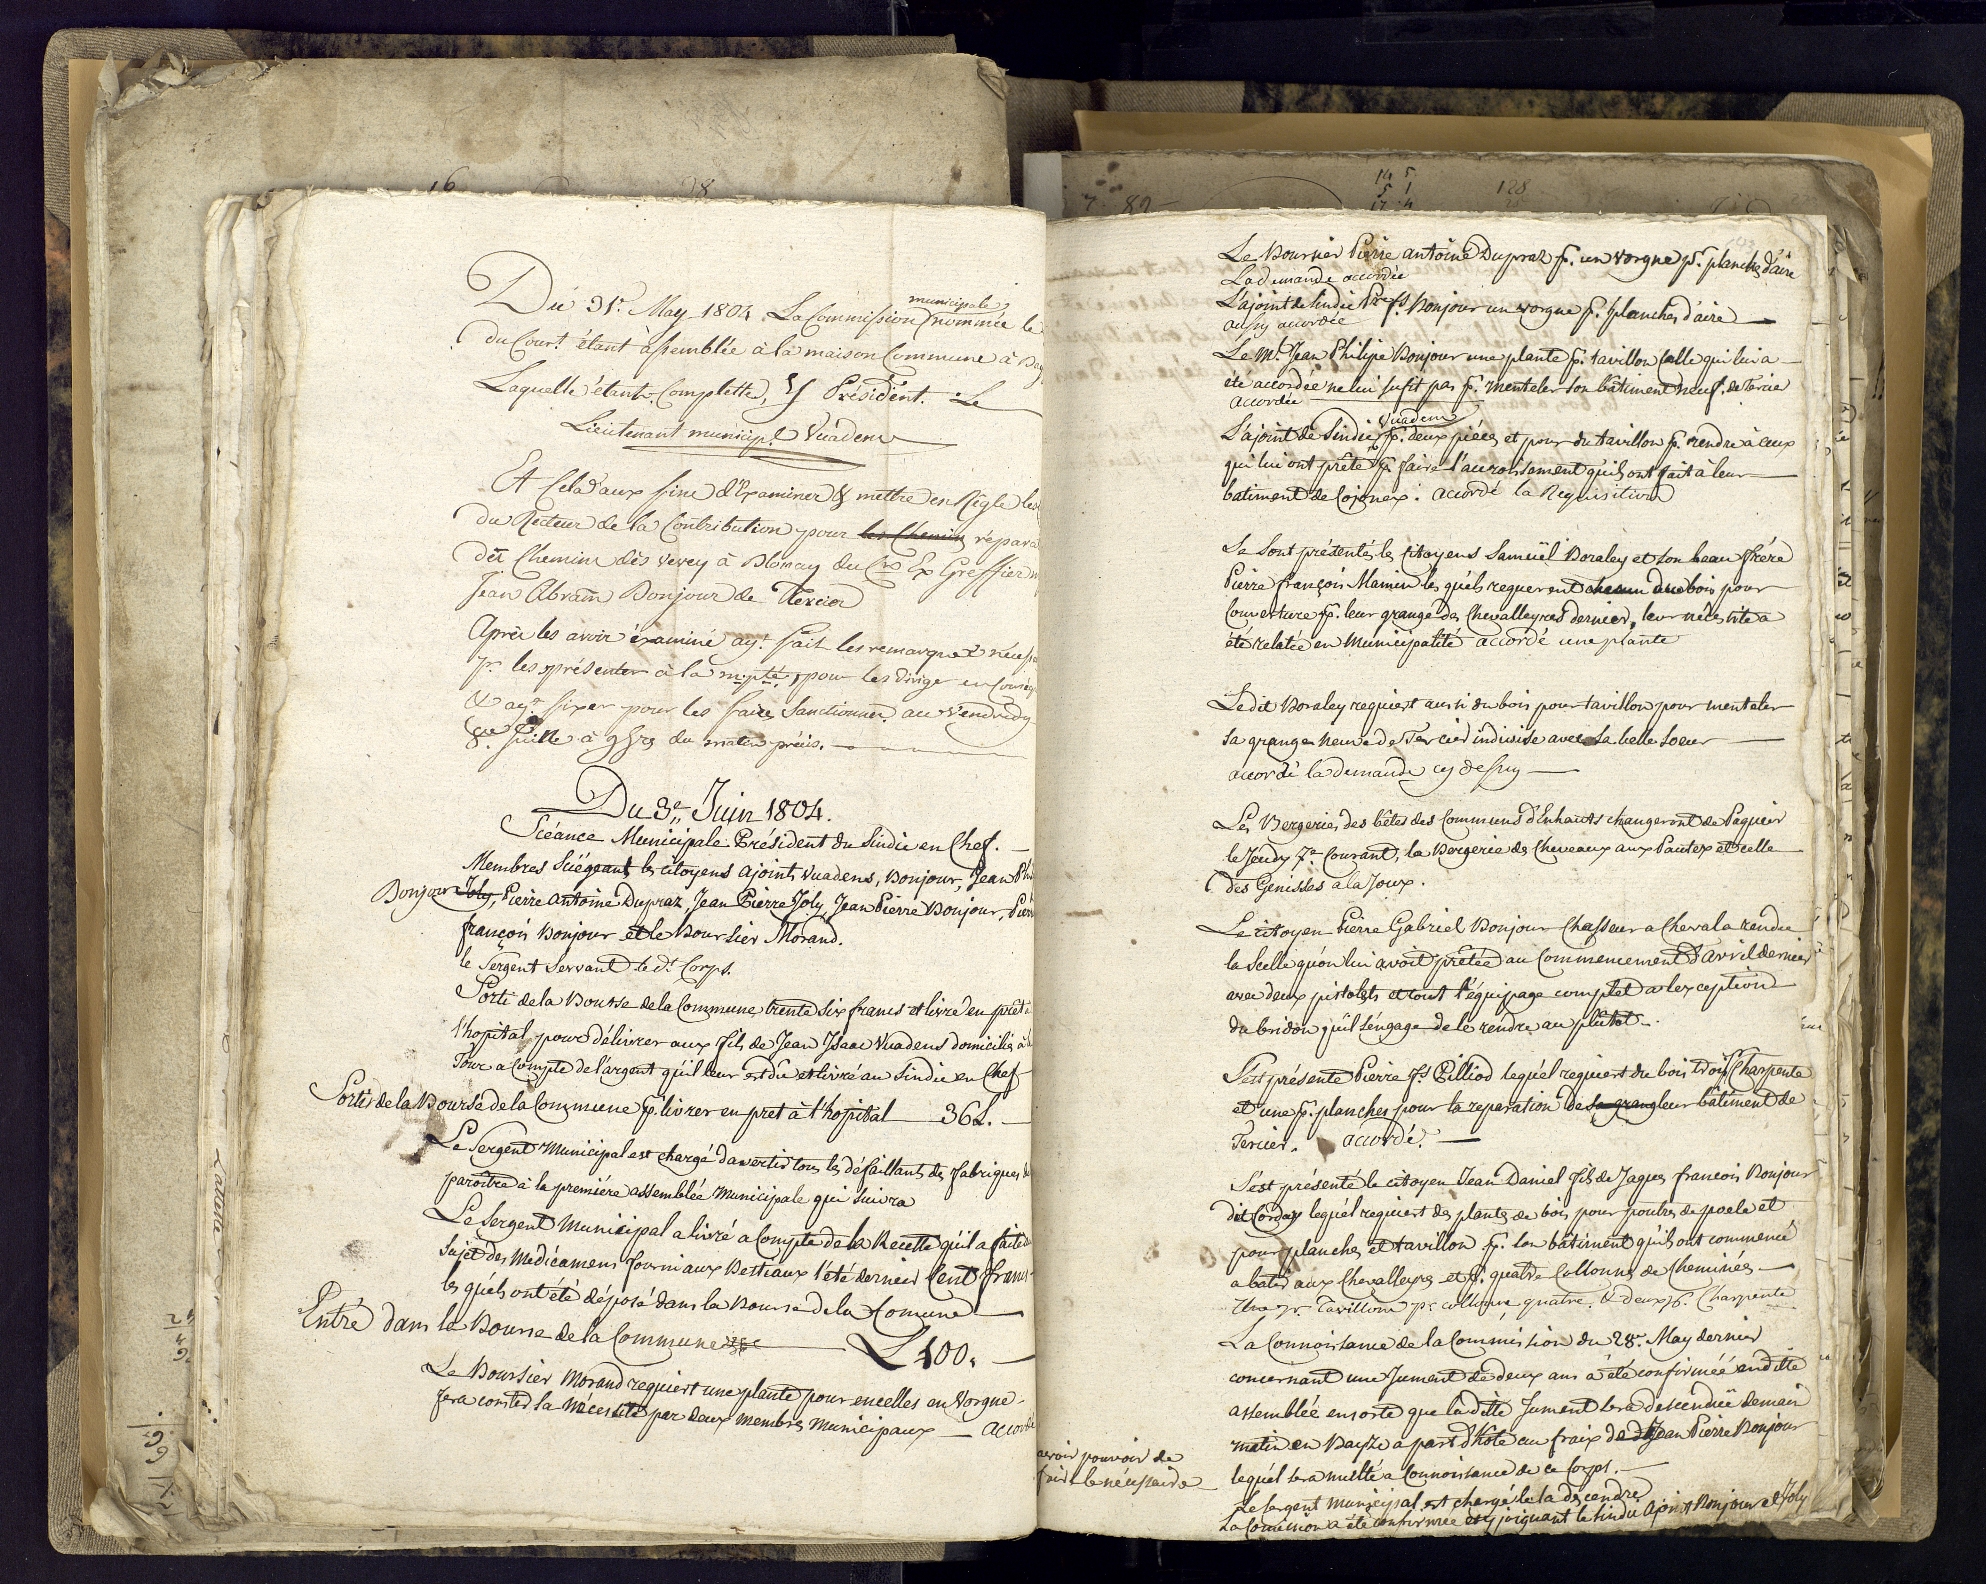 Du 31e. May 1804. La Commission municipale nommée le
du Court. étant assemblée à la maison Commune à
Laquelle étant Complette, Président. Le
Lieutenant municipl Vuadens
Et Cela aux fins d'Examiner & mettre en Règle les
du Recteur de la Contribution pour les Chemins répara
des Chemins dès Vevey à Blonay du Cn Ex Greffier
Jean Abram Bonjour de Tercier
Après les avoir examiné ayt. fait les remarques néces
pr. les présenter à la mpté, pour les dirige en
& ayt. fixer pour les faire Sanctionner au Vendredy
8e. Juille à 9 hrs du matin précis.
Du 3e. Juin 1804.
Scéance Municipale Président du Sindic en Chef.
Membres Sciégeants les citoyens ajoints Vuadens, Bonjour, Jean Phi
Bonjour Joly, Pierre antoine Dupraz, Jean Pierre Joly, Jean Pierre Bonjour, Pierre
françois Bonjour et le Boursier Morand.
le Sergent Servant le dt. Corps.
Sorti de la Bourse de la Commune trente six francs et livré en prêt à
l'hopital pour délivrer aux fils de Jean Isaac Vuadens domiciliés à la
Tour a Compte de l'argent qu'il leur est dû et livré au Sindic en Chef
Sorti de la Bourse de la Commune p. livrer en pret à l'hopital 36 L.
Le Sergent Municipal est chargé d'avertir tous les défaillants des fabriques de
paroître à la première assemblée municipale qui suivra
Le Sergent Municipal a livré a Compte de la Recette qu'il a faite
Sujet des Medicamens fourni aux Bestiaux l'été dernier Cent francs
les quéls ont été déposé dans la Bourse de la Comune
Entré dans la Bourse de la Commune L 100.
Le Boursier Morand requiert une plante pour encelles en Vorgne
fera conster la nécessité par deux membres municipaux — accordé
avoir pouvoir de
faire le nécessaire
Le Boursier Pierre antoine Dupraz p. un vorgne pr. planches d'aire
La demande accordée
L'ajoint de Sindic Pre fs. Bonjour un vorgne p. planches d'aire
aussy accordée
Le Mr. Jean Philipe Bonjour une plante p. tavillon Celle qui lui a
été accordée ne lui sufit pas p. menteler son bâtiment neuf de Tercie
accordée
L'ajoint de Sindic Vuadens p. deux pièces et pour du tavillon p. rendre à ceux
qui lui ont prêté p. faire l'accroissement qu'ils ont fait à leur
batiment de Cojonex. accordé la Requisition
Se Sont présentés les citoyens Samuël Boraley et son beau frére
Pierre françois Mamin les quéls requerent chacun du bois pour
Couverture p. leur grange des Chevalleyres dernier, leur nécessité a
été relatée en Municipalité accordé une plante
Ledit Boraley requiert aussi du bois pour tavillon pour menteler
sa grange neuve de Tercier indivise avec sa belle soeur
accordé la demande cy dessus
Les Bergeries des bêtes des Communs d'Enhauts changeront de Paquier
le Jeudy 7e. Courant, la Bergerie des Cheveaux aux Pautex et celle
des Genisses a la Joux.
Le citoyen Pierre Gabriel Bonjour Chasseur a Cheval a rendu
la Scelle qu'on lui avoit prêtée au Commencement d'avril dernier
avec deux pistolets et tout l'équipage complet a l'exception
du bridon qu'il s'engage de le rendre au plutot.
S'est présenté Pierre fs. Pilliod lequél requiert du bois trois pr. Charpente
et une p. planches pour la reparation de sa grang leur bâtiment de
Tercier. accordé.
S'est présenté le citoyen Jean Daniel fils de Jaques françois Bonjour
dit Corday lequél requiert des plantes de bois pour poutres de poele et
pour planches et tavillon p. son bâtiment qu'ils ont commencé
a batir aux Chevalleyres et p. quatre Collonnes de Cheminées
Une pr. Tavillons pr. collonne quatre. & deux p. Charpente
La Connoissance de la Commission du 28e. May dernier
concernant une Jument de deux ans a été confirméé en dite
assemblée ensorte que la ditte Jument sera descendüe demain
matin en Bayse a part d'hôte au fraix de dt Jean Pierre Bonjour
lequél sera multé a Connoissance de ce Corps.
Le Sergent municipal est chargé de la descendre
La Comission a été confirmée et y joignant le Sindic Ajoint Bonjour et Joly